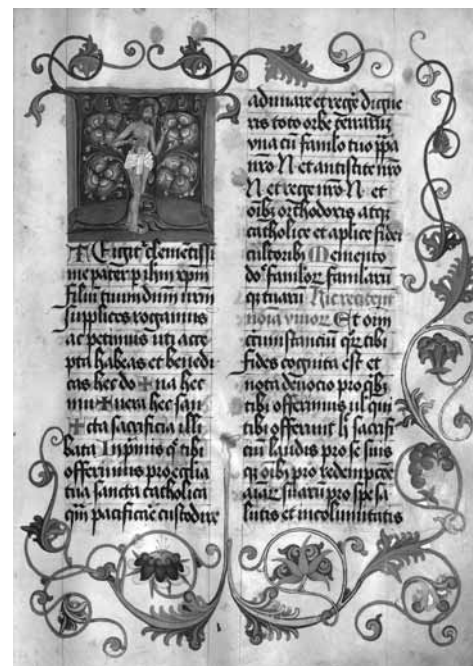 TE igit᷑ clementissi
me pater p ihm xpm
filiū tuum dnm nrm
supplices rogamus
ac petimus uti acce
pta habeas et benedi
cas hec do ✠ na hec
mu ✠ nera hec san
✠ cta sacrificia illi
bata Inpimis q̄ tibi
offerimus pro ecclia
tua sancta catholica
qm̄ pacificare custodire
adunare et regē digne
ris toto orbe terrarū
vna cū famlo tuo ppa
nr̄o N et antistite nr̄o
N et rege nr̄o N et
oībꝫ orthodoxis atqꝫ
catholice et aplice fidei
cultoribꝫ Memento
dō famlorꝫ famlarū
qꝫ tuarū Hic recitent
noīa viuorꝫ Et oīm
circumstanciū qrꝫ tibi
fides cognita est et
nota deuocio pro qībꝫ
tibi offerimus ul qui
tibi offerunt h sacrifi
ciū laudis pro se suis
qꝫ oībꝫ pro redempcōe
aīarꝫ suarū pro spe sa
lutis et incolumitatis